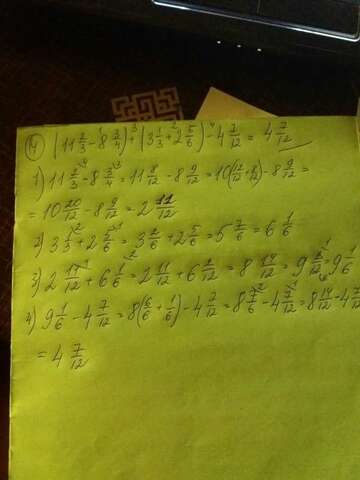 14) (11 2/3 - 8 3/4) + (3 1/3 + 2 5/6) - 4 7/12 = 4 7/12
1) 11 2/3 - 8 3/4 = 11 8/12 - 8 9/12 = 10(12/12 + 8/12) - 8 9/12 =
= 10 20/12 - 8 9/12 = 2 11/12
2) 3 1/3 + 2 5/6 = 3 2/6 + 2 5/6 = 5 7/6 = 6 1/6
3) 2 11/12 + 6 1/6 = 2 11/12 + 6 2/12 = 8 13/12 = 9 1/12 = 9 1/6
4) 9 1/6 - 4 7/12 = 8(6/6 + 1/6) - 4 7/12 = 8 7/6 - 4 7/12 = 8 14/12 - 4 7/12
= 4 7/12